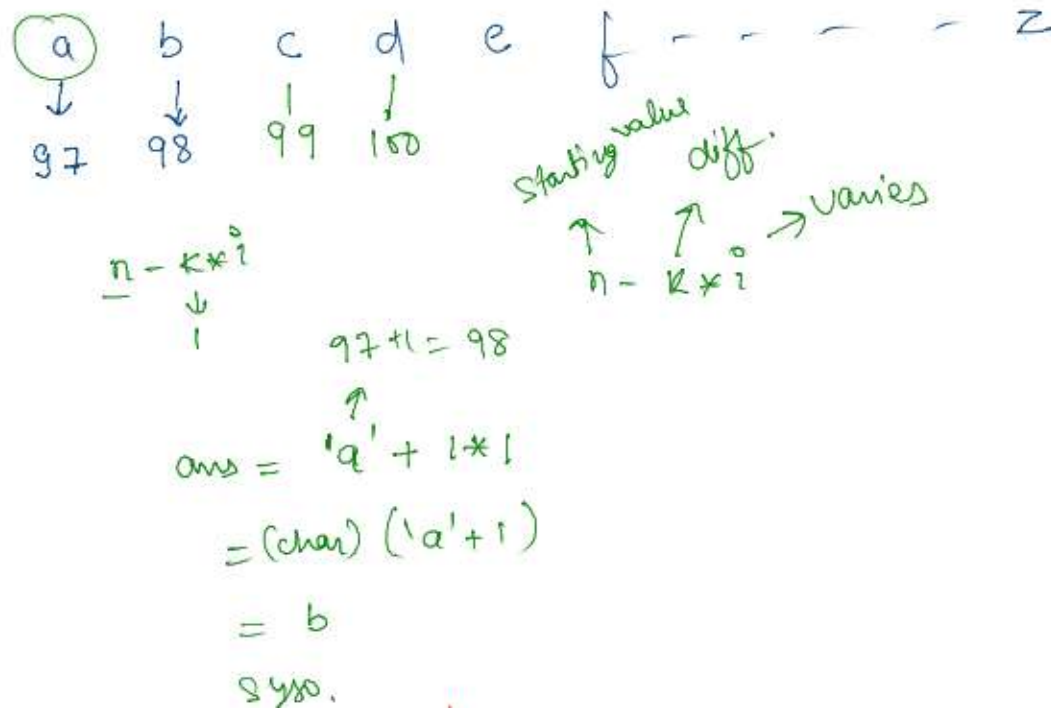 a b c d e f - - - - - z
97 98 99 100
starting value diff.
n - k*i → varies
n - k*i
1
97+1 = 98
ans = 'a' + 1*1
= (char) ('a'+1)
= b
syso.